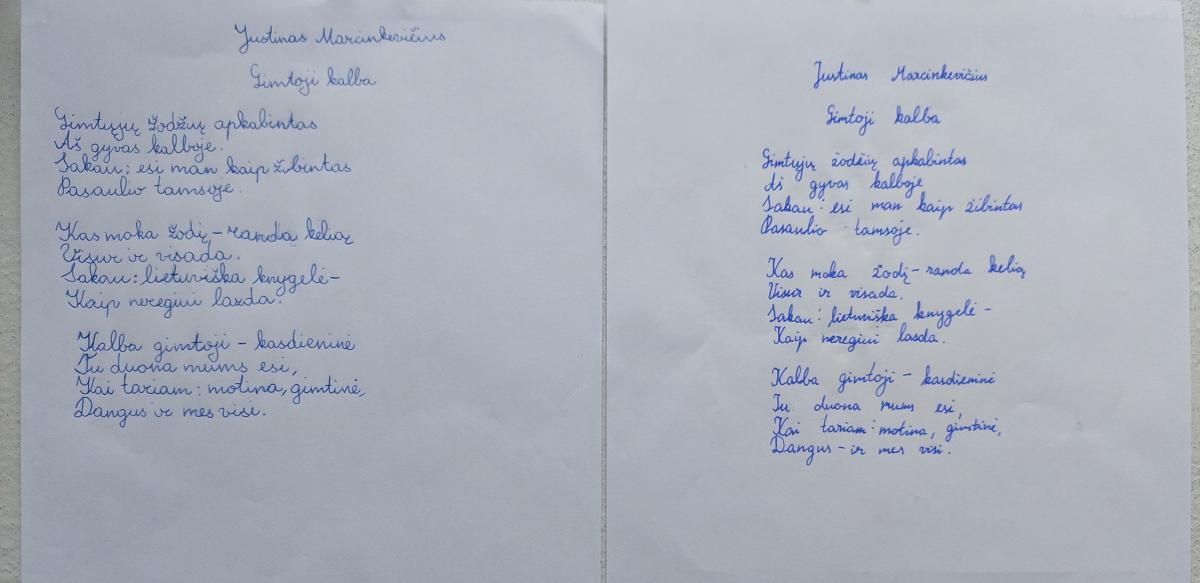 Justinas Marcinkevičius
Gimtoji kalba
Gimtųjų žodžių apkabintas
Aš gyvas kalboje.
Sakau: esi man kaip žibintas
Pasaulio tamsoje.
Kas moka žodį, – randa kelią
Visur ir visada.
Sakau: lietuviška knygelė –
Kaip neregiui lazda.
Kalba gimtoji – kasdieninė
Tu duona mums esi,
Kai tariam: motina, gimtinė,
Dangus ir mes visi.
Justinas Marcinkevičius
Gimtoji kalba
Gimtųjų žodžių apkabintas
Aš gyvas kalboje
Sakau: esi man kaip žibintas
Pasaulio tamsoje.
Kas moka žodį – randa kelią
Visur ir visada.
Sakau: lietuviška knygelė –
Kaip neregiui lasda.
Kalba gimtoji – kasdieninė
Tu duona mums esi,
Kai tariam: motina, gimtinė,
Dangus – ir mes visi.